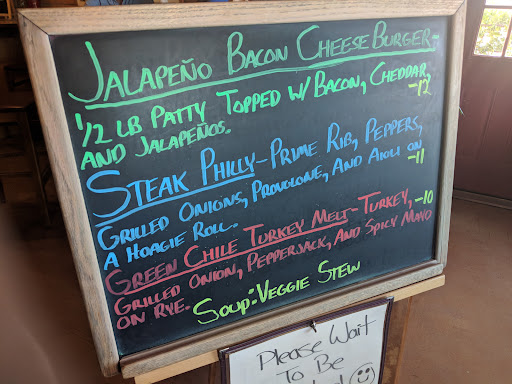 Jalapeño Bacon Cheese Burger-
1/2 lb Patty Topped w/ Bacon, Cheddar,
and Jalapeños. -12
Steak Philly - Prime Rib, Peppers,
Grilled Onions, Provolone, and Aioli on
A Hoagie Roll. -11
Green Chile Turkey Melt - Turkey, -10
Grilled Onion, Pepperjack, and Spicy Mayo
on Rye.
Soup: Veggie Stew
Please Wait
To Be